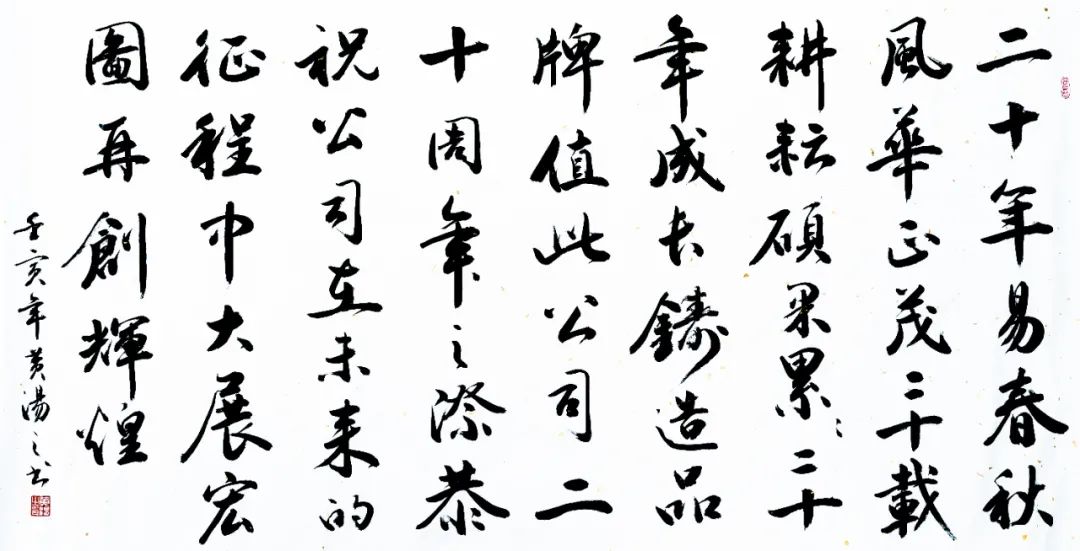 二十年易春秋
風華正茂二十載
耕耘碩果累々二十
年成长鑄造品
牌值此公司二
十周年之際恭
祝公司在未来的
征程中大展宏
圖再創輝煌
壬寅年黄湯之书